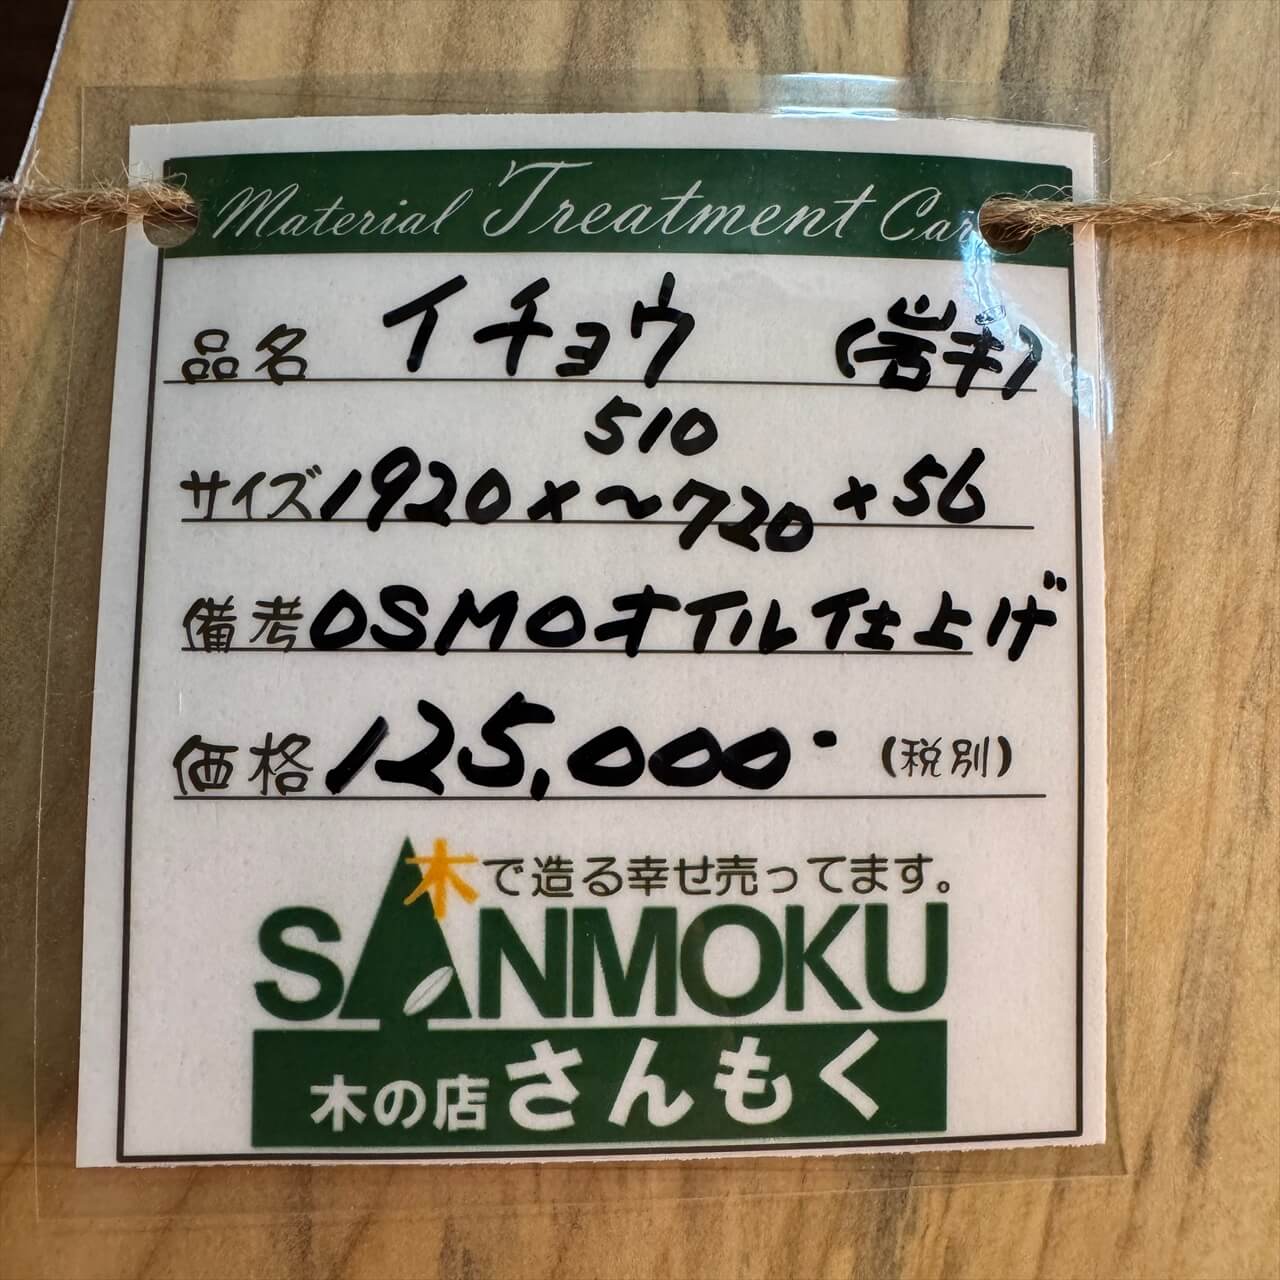 Material Treatment Car
品名 イチョウ (岩手)
510
サイズ 1920×~720×56
備考 OSMOオイル仕上げ
価格 125,000- (税別)
木で造る幸せ売ってます。
SANMOKU
木の店 さんもく